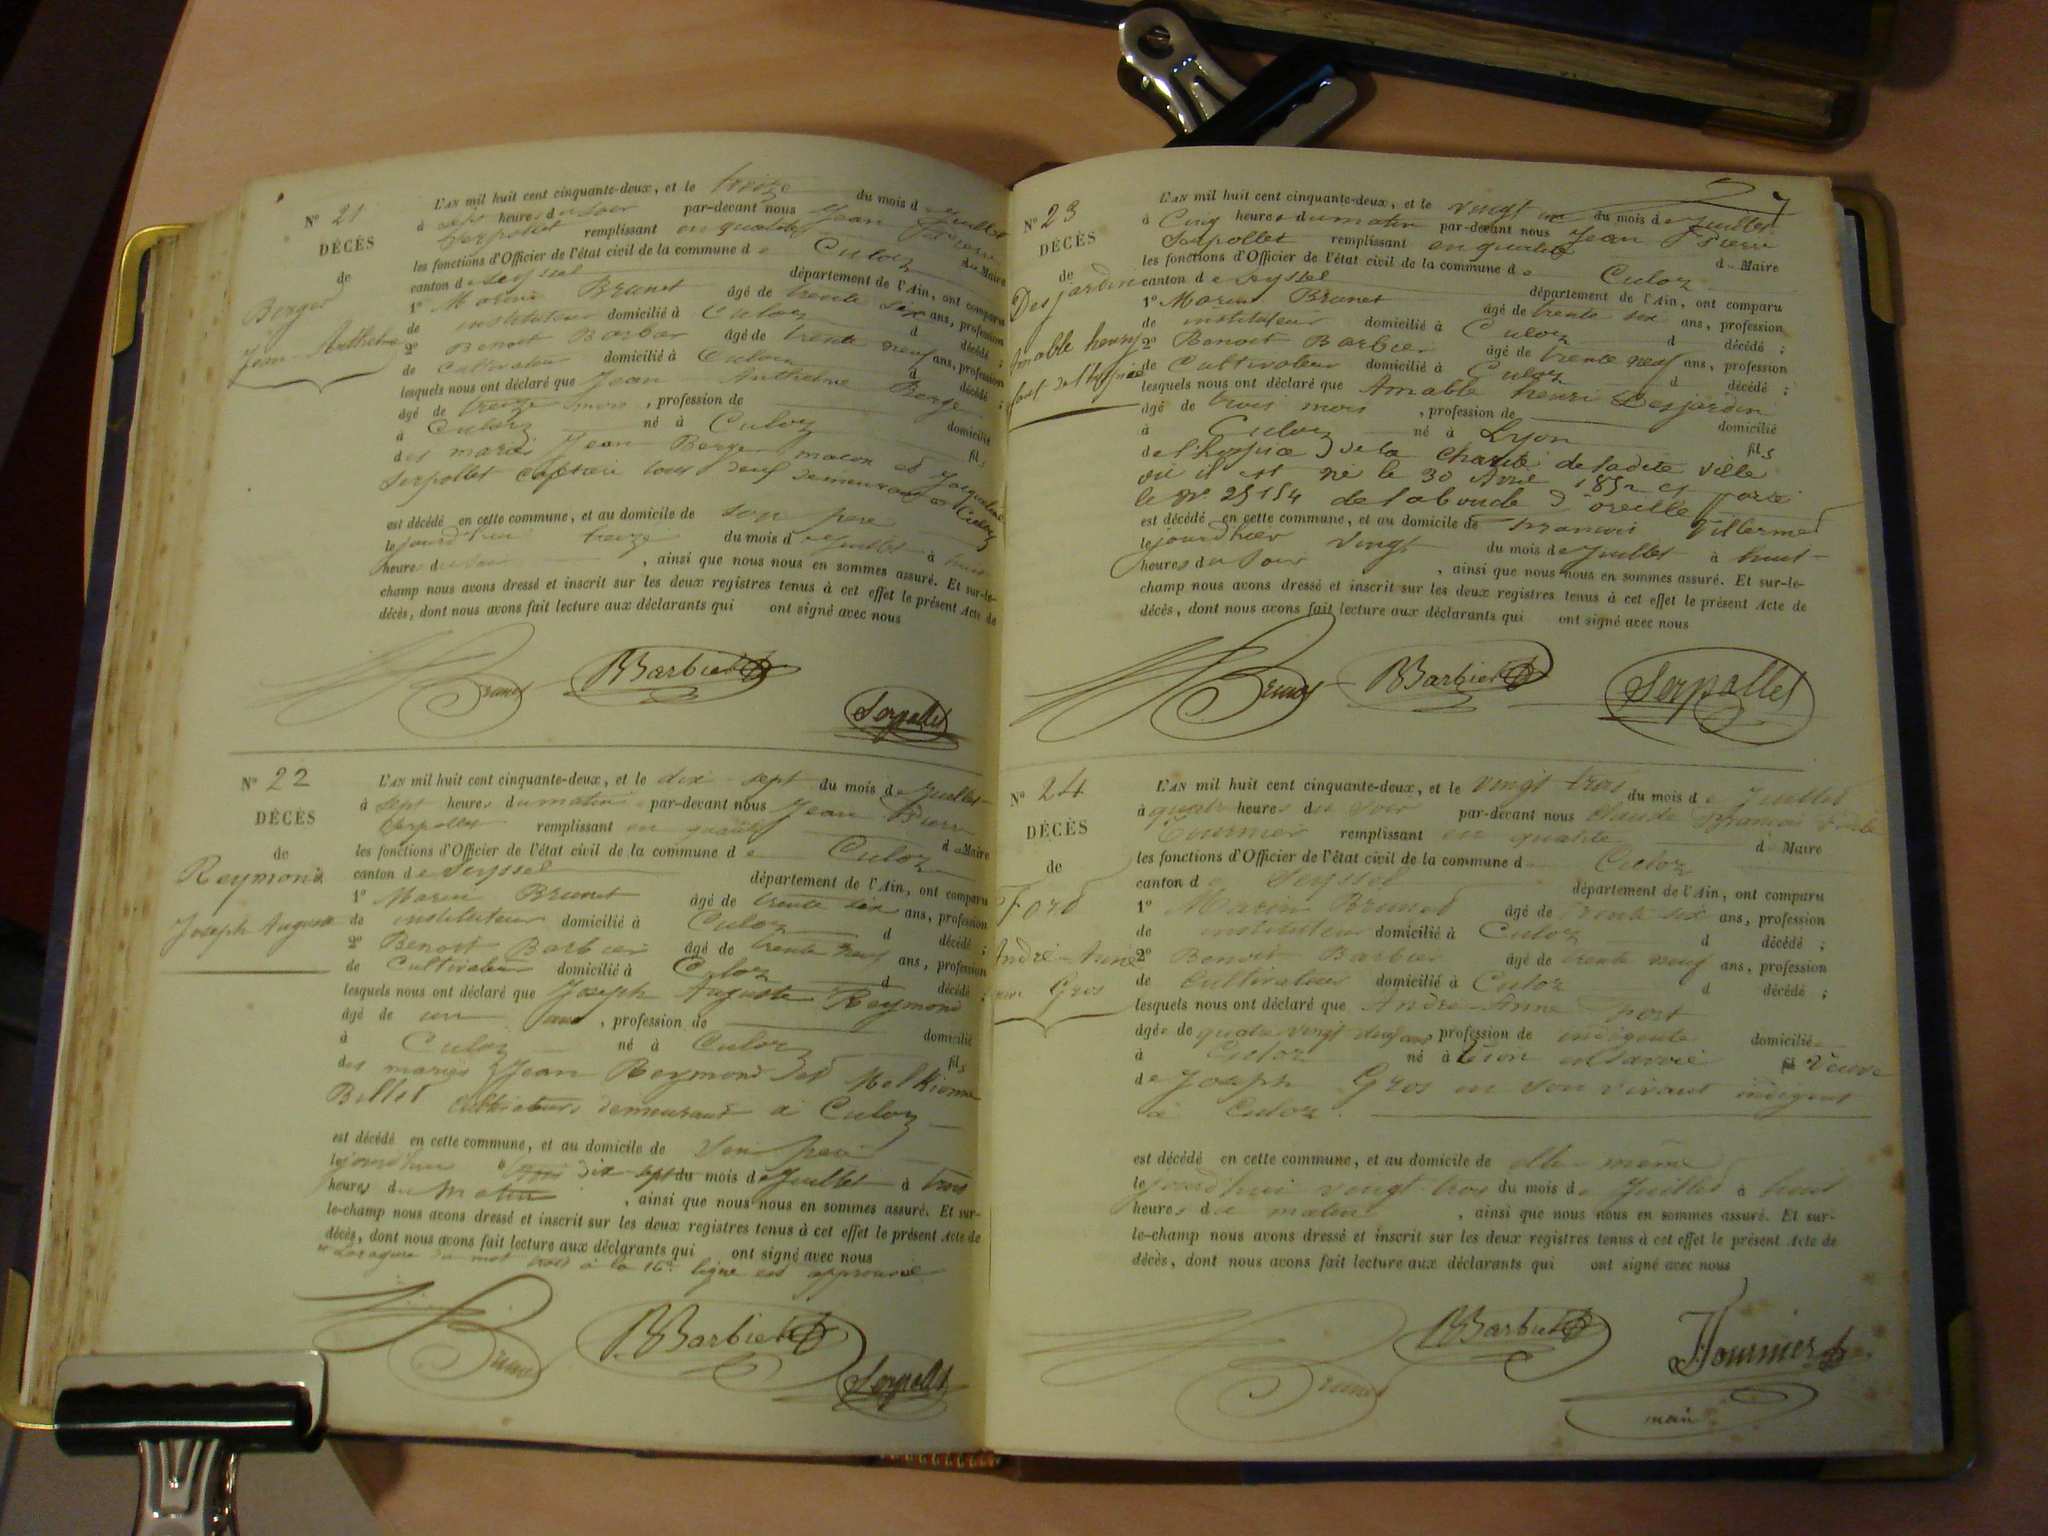 N° 21
DÉCÈS
de
Berger
Jean Anthelme
L'AN mil huit cent cinquante-deux, et le treize du mois de Juillet
à sept heures du soir par-devant nous Jean Pierre
Serpollet remplissant en qualité de Maire
les fonctions d'Officier de l'état civil de la commune de Culoz
canton de Seyssel département de l'Ain, ont comparu
1° Marin Brunet âgé de trente six ans, profession
de instituteur domicilié à Culoz d décédé ;
2° Benoit Barbier âgé de trente neuf ans, profession
de Cultivateur domicilié à Culoz d décédé ;
lesquels nous ont déclaré que Jean Anthelme Berger
âgé de treize mois , profession de
à Culoz né à Culoz domicilié
fils
des mariés Jean Berger macon et Jacqueline
Serpollet tous deux demeurant à Culoz
est décédé en cette commune, et au domicile de son pere
le jourd'hui treize du mois de Juillet à
heures du soir , ainsi que nous nous en sommes assuré. Et sur-le-
champ nous avons dressé et inscrit sur les deux registres tenus à cet effet le présent Acte de
décès, dont nous avons fait lecture aux déclarants qui ont signé avec nous
Brunet BBarbier
Serpollet
N° 22
DÉCÈS
de
Reymond
Joseph Auguste
L'AN mil huit cent cinquante-deux, et le dix sept du mois de Juillet
à sept heures du matin par-devant nous Jean Pierre
Serpollet remplissant en qualité de Maire
les fonctions d'Officier de l'état civil de la commune de Culoz
canton de Seyssel département de l'Ain, ont comparu
1° Marin Brunet âgé de trente six ans, profession
de instituteur domicilié à Culoz d décédé ;
2° Benoit Barbier âgé de trente neuf ans, profession
de Cultivateur domicilié à Culoz d décédé ;
lesquels nous ont déclaré que Joseph Auguste Reymond
âgé de un , profession de
à Culoz né à Culoz domicilié
fils
des mariés Jean Reymond et
Billet Cultivateurs demeurant à Culoz
est décédé en cette commune, et au domicile de son pere
le jourd'hui dix-sept du mois de Juillet à trois
heures du Matin , ainsi que nous nous en sommes assuré. Et sur-
le-champ nous avons dressé et inscrit sur les deux registres tenus à cet effet le présent Acte de
décès, dont nous avons fait lecture aux déclarants qui ont signé avec nous
du mot trois à la 16e ligne est approuvée
Brunet BBarbier Serpollet
7
N° 23
DÉCÈS
de
Desjardin
Amable henry
L'AN mil huit cent cinquante-deux, et le vingt un du mois de Juillet
à Cinq heures du matin par-devant nous Jean Pierre
Serpollet remplissant en qualité de Maire
les fonctions d'Officier de l'état civil de la commune de Culoz
canton de Seyssel département de l'Ain, ont comparu
1° Marin Brunet âgé de trente six ans, profession
de instituteur domicilié à Culoz d décédé ;
2° Benoit Barbier âgé de trente neuf ans, profession
de Cultivateur domicilié à Culoz d décédé ;
lesquels nous ont déclaré que Amable henri Desjardin
âgé de trois mois , profession de
à Culoz né à Lyon domicilié
fils
de l'hospice de la Charité de ladite ville
ou il est né le 30 Avril 1852 et
le N° 25154 de la boucle d'oreille
est décédé en cette commune, et au domicile de francois Villermet
le jourd'hier vingt du mois de Juillet à huit
heures du soir , ainsi que nous nous en sommes assuré. Et sur-le-
champ nous avons dressé et inscrit sur les deux registres tenus à cet effet le présent Acte de
décès, dont nous avons fait lecture aux déclarants qui ont signé avec nous
Brunet BBarbier Serpollet
N° 24
DÉCÈS
de
Ford
André-Anne
Gros
L'AN mil huit cent cinquante-deux, et le vingt trois du mois de Juillet
à quatre heures du soir par-devant nous Claude francois
Fournier remplissant en qualité de Maire
les fonctions d'Officier de l'état civil de la commune de Culoz
canton de Seyssel département de l'Ain, ont comparu
1° Marin Brunet âgé de trente six ans, profession
de instituteur domicilié à Culoz d décédé ;
2° Benoit Barbier âgé de trente neuf ans, profession
de Cultivateur domicilié à Culoz d décédé ;
lesquels nous ont déclaré que André-Anne
âgée de quatre vingt ans, profession de indigente domiciliée
à Culoz né à en Savoie Veuve
de Joseph Gros en son vivant indigent
à Culoz
est décédé en cette commune, et au domicile de elle-même
le jourd'hui vingt trois du mois de Juillet à huit
heures du matin , ainsi que nous nous en sommes assuré. Et sur-
le-champ nous avons dressé et inscrit sur les deux registres tenus à cet effet le présent Acte de
décès, dont nous avons fait lecture aux déclarants qui ont signé avec nous
Brunet BBarbier Fournier